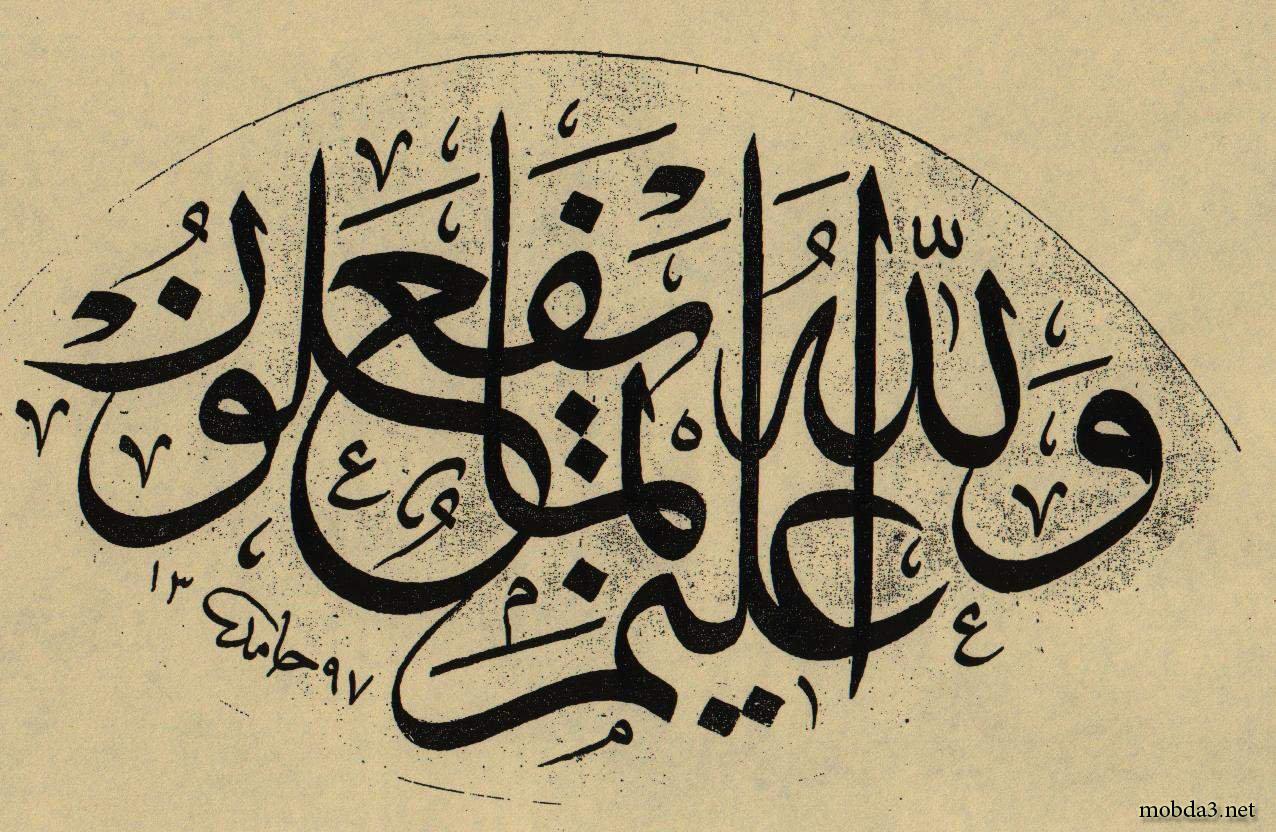 وَاللّٰهُ عَلِيمٌ بِمَا يَفْعَلُونَ
حامد ١٣٩٧
mobda3.net